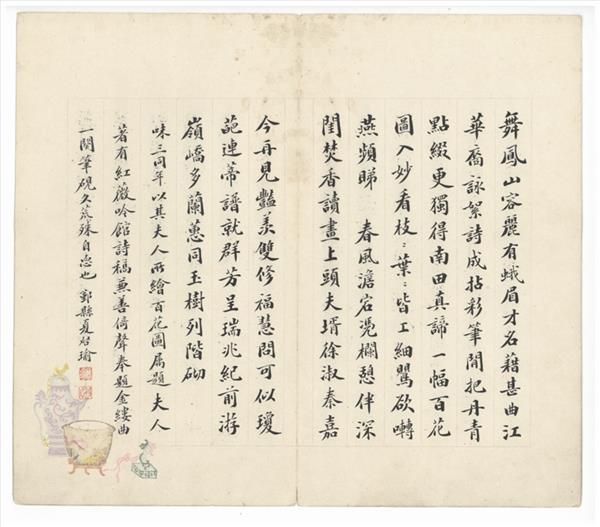 舞鳳山容麗有蛾眉才名藉甚曲江
華裔詠絮詩成拈彩筆閒把丹青
點綴更獨得南田真諦一幅百花
圖入妙看枝〻葉〻皆工細鶯欲囀
燕頻睇 春風澹宕凴欄憩伴深
閨焚香讀畫上頭夫壻徐淑秦嘉
今再見豔羨雙修福慧問可似瓊
葩連蒂譜就群芳呈瑞兆紀前游
嶺嶠多蘭蕙同玉樹列階砌
味三同年以其夫人所繪百花圖屬題夫人
著有紅薇吟館詩稿兼善倚聲奉題金縷曲
一闋筆硯久荒殊自恧也 鄞縣夏啓瑜